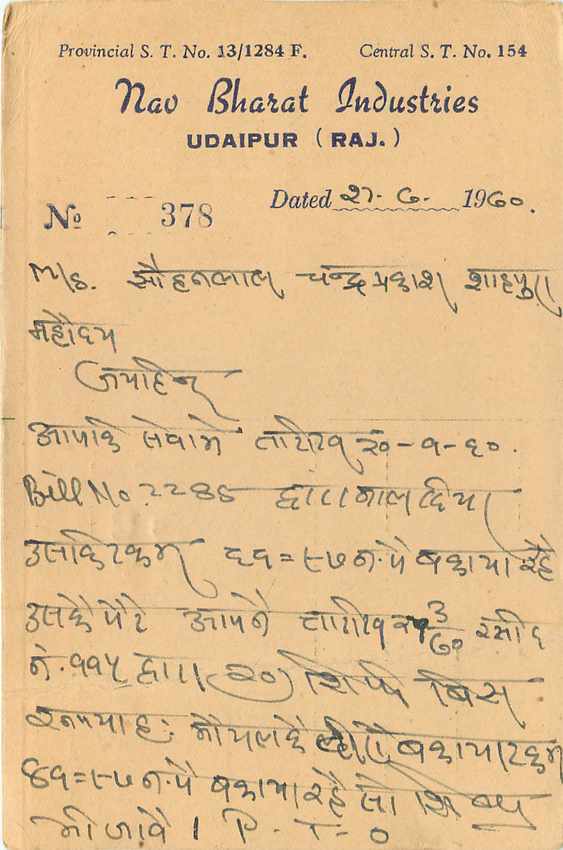 Provincial S. T. No. 13/1284 F. Central S. T. No. 154
Nav Bharat Industries
UDAIPUR ( RAJ. )
No 378 Dated २7- 6- 1960.
M/s. सौहनलाल चन्द्र प्रकाश शाहपुरा
महौदय
जयहिन्द
आपकि सेवामे तारीख २०-१-६०
Bill No. 2286 द्वारा माल दिया
उसकि रकम ६१=९७ न. पै बकाया रहै
उसकै पैटै आपनै तारीख २९ 3/60 रसीद
नं. ११५ द्वारा (२०) सिर्फ बिस
रुपया
बकाया रकम
४१=९७ न. पै बकाया रहै सो
P. T- O